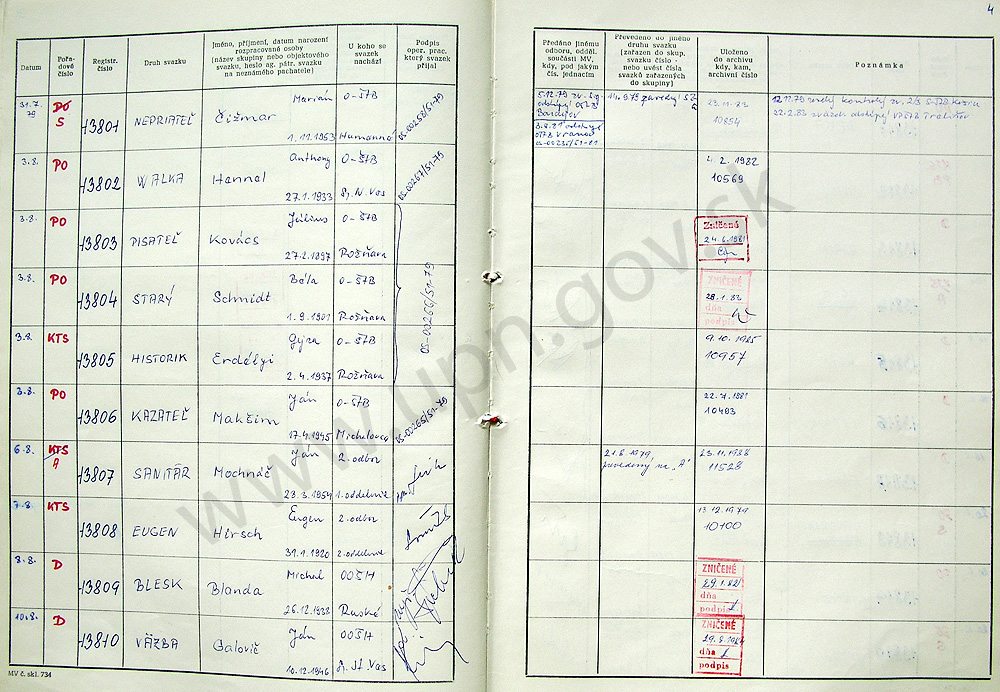 4
Datum
Pořadové číslo
Registr. číslo
Druh svazku
Jméno, příjmení, datum narození rozpracované osoby (název skupiny nebo objektového svazku, heslo ag. pátr. svazku na neznámého pachatele)
U koho se svazek nachází
Podpis oper. prac. který svazek přijal
Předáno jinému odboru, odděl. součásti MV, kdy, pod jakým čís. jednacím
Převedeno do jiného druhu svazku (zařazen do skup. svazku číslo - nebo uvést čísla svazků zařazených do skupiny)
Uloženo do archivu kdy, kam, archivní číslo
Poznámka
31.7. 79 PO S 13801 NEPRIATEĽ Čižmar Marián 1.11.1953 O-ŠTB Humenné
5.12.79
Bardejov
3.8.81
Vranov
23.11.83
10854
12.11.79
22.2.83
3.8. PO 13802 WALKA Hannel Anthony 27.1.1933 O-ŠTB Sp. N. Ves OS-00267/S1-79
4.2.1982
10569
3.8. PO 13803 PISATEĽ Kovács Július 27.2.1897 O-ŠTB Rožňava
Zničené
24.6.1981
3.8. PO 13804 STARÝ Schmidt Béla 1.9.1901 O-ŠTB Rožňava OS-00266/S1-79
ZNIČENÉ
28.1.82
dňa
podpis
3.8. KTS 13805 HISTORIK Erdélyi 2.4.1937 O-ŠTB Rožňava
9.10.1985
10957
3.8. PO 13806 KAZATEĽ Makšim Ján 17.4.1945 O-ŠTB Michalovce OS-00265/S1-79
22.7.1981
10493
6.8. KTS A 13807 SANITÁR Mochnáč Ján 23.3.1954 2. odbor 1. oddelenie
21.8.1979, prevedený na "A"
23.11.1988
11528
7.8. KTS 13808 EUGEN Hirsch Eugen 31.1.1920 2. odbor 2. oddelenie
13.12.1979
10100
8.8. D 13809 BLESK Blanda Michal 26.12.1938 OOŠH Ruské
ZNIČENÉ
29.1.82
dňa
podpis
10.8. D 13810 VÄZBA Galovič Ján 10.12.1946 OOŠH
ZNIČENÉ
dňa
podpis
MV č. skl. 734
www.upn.gov.sk